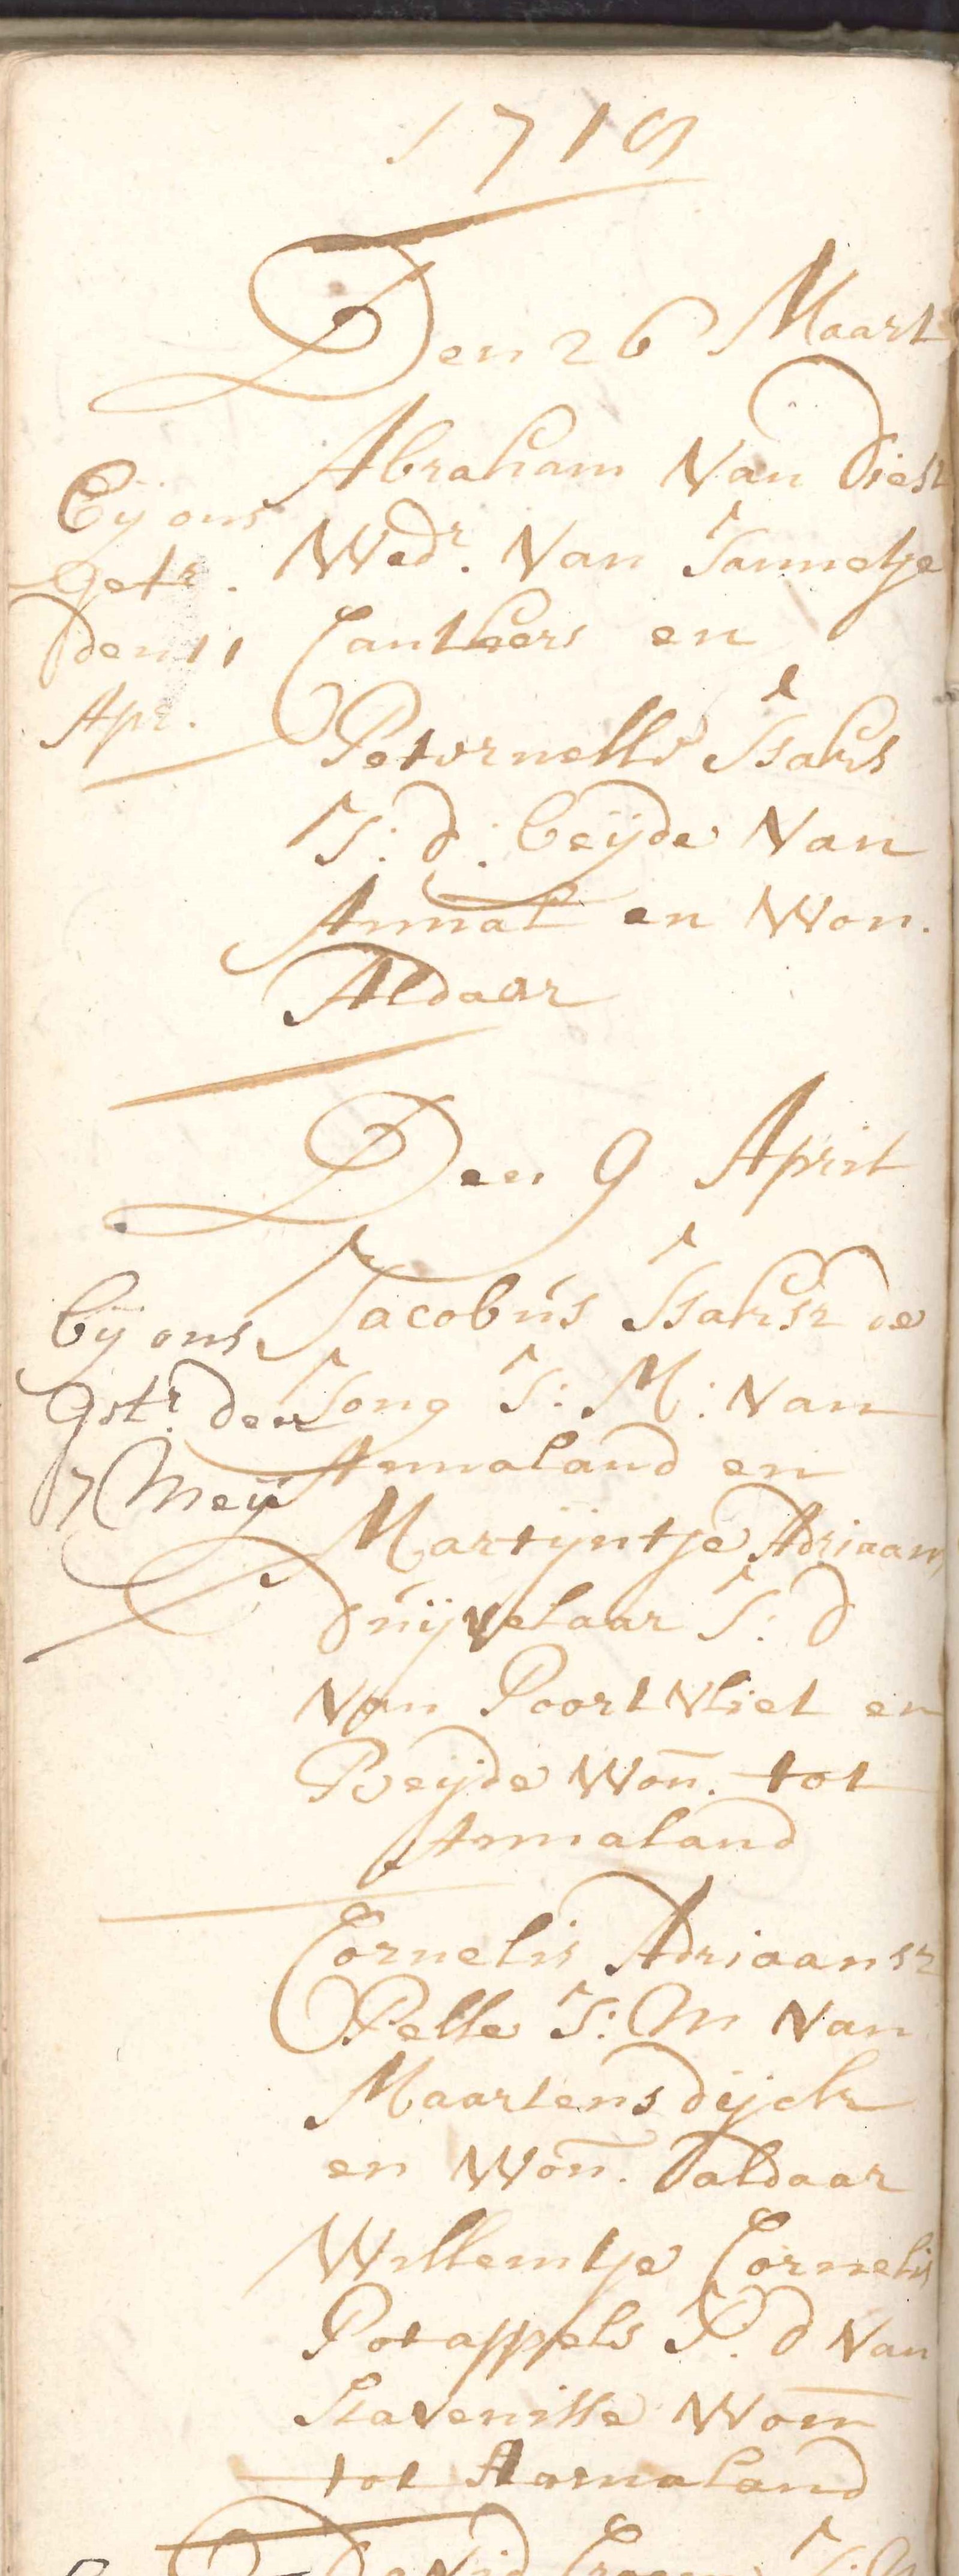 1718
Den 26 Maart
Abraham Van Diest
Wedr. Van Jannetje
Canthers en
Peternella Isaks
J: d: beijde Van
Annal en Won.
Aldaar
Bij ons
Getr.
den 11
Apr.
Den 9 April
Jacobus Isaksz de
Jong J: M: Van
Annaland en
Martijntje Adriaans
Duijvelaar J: d
Van Poortvliet en
Beijde Won. tot
Annaland
bij ons
Getr. den
7 Meij
Cornelis Adriaansz
Pelle J: M Van
Maartensdijck
en Won. aldaar
Willemtje Cornelis
Potappels J. d Van
Stavenisse Won
tot Annaland
David